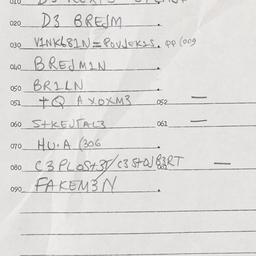 020 D3 BREJM
030 V1NK681N = POVJEK2S. pp (009
040 BREJM1N
050 BR1LN
051 +Q AXOXM3 052 —
060 S+KEJTAL3 061 —
070 HU.A (306
080 C3 PLOS+3T/C3 S+OJ B3RT —
090 FAKEM3N